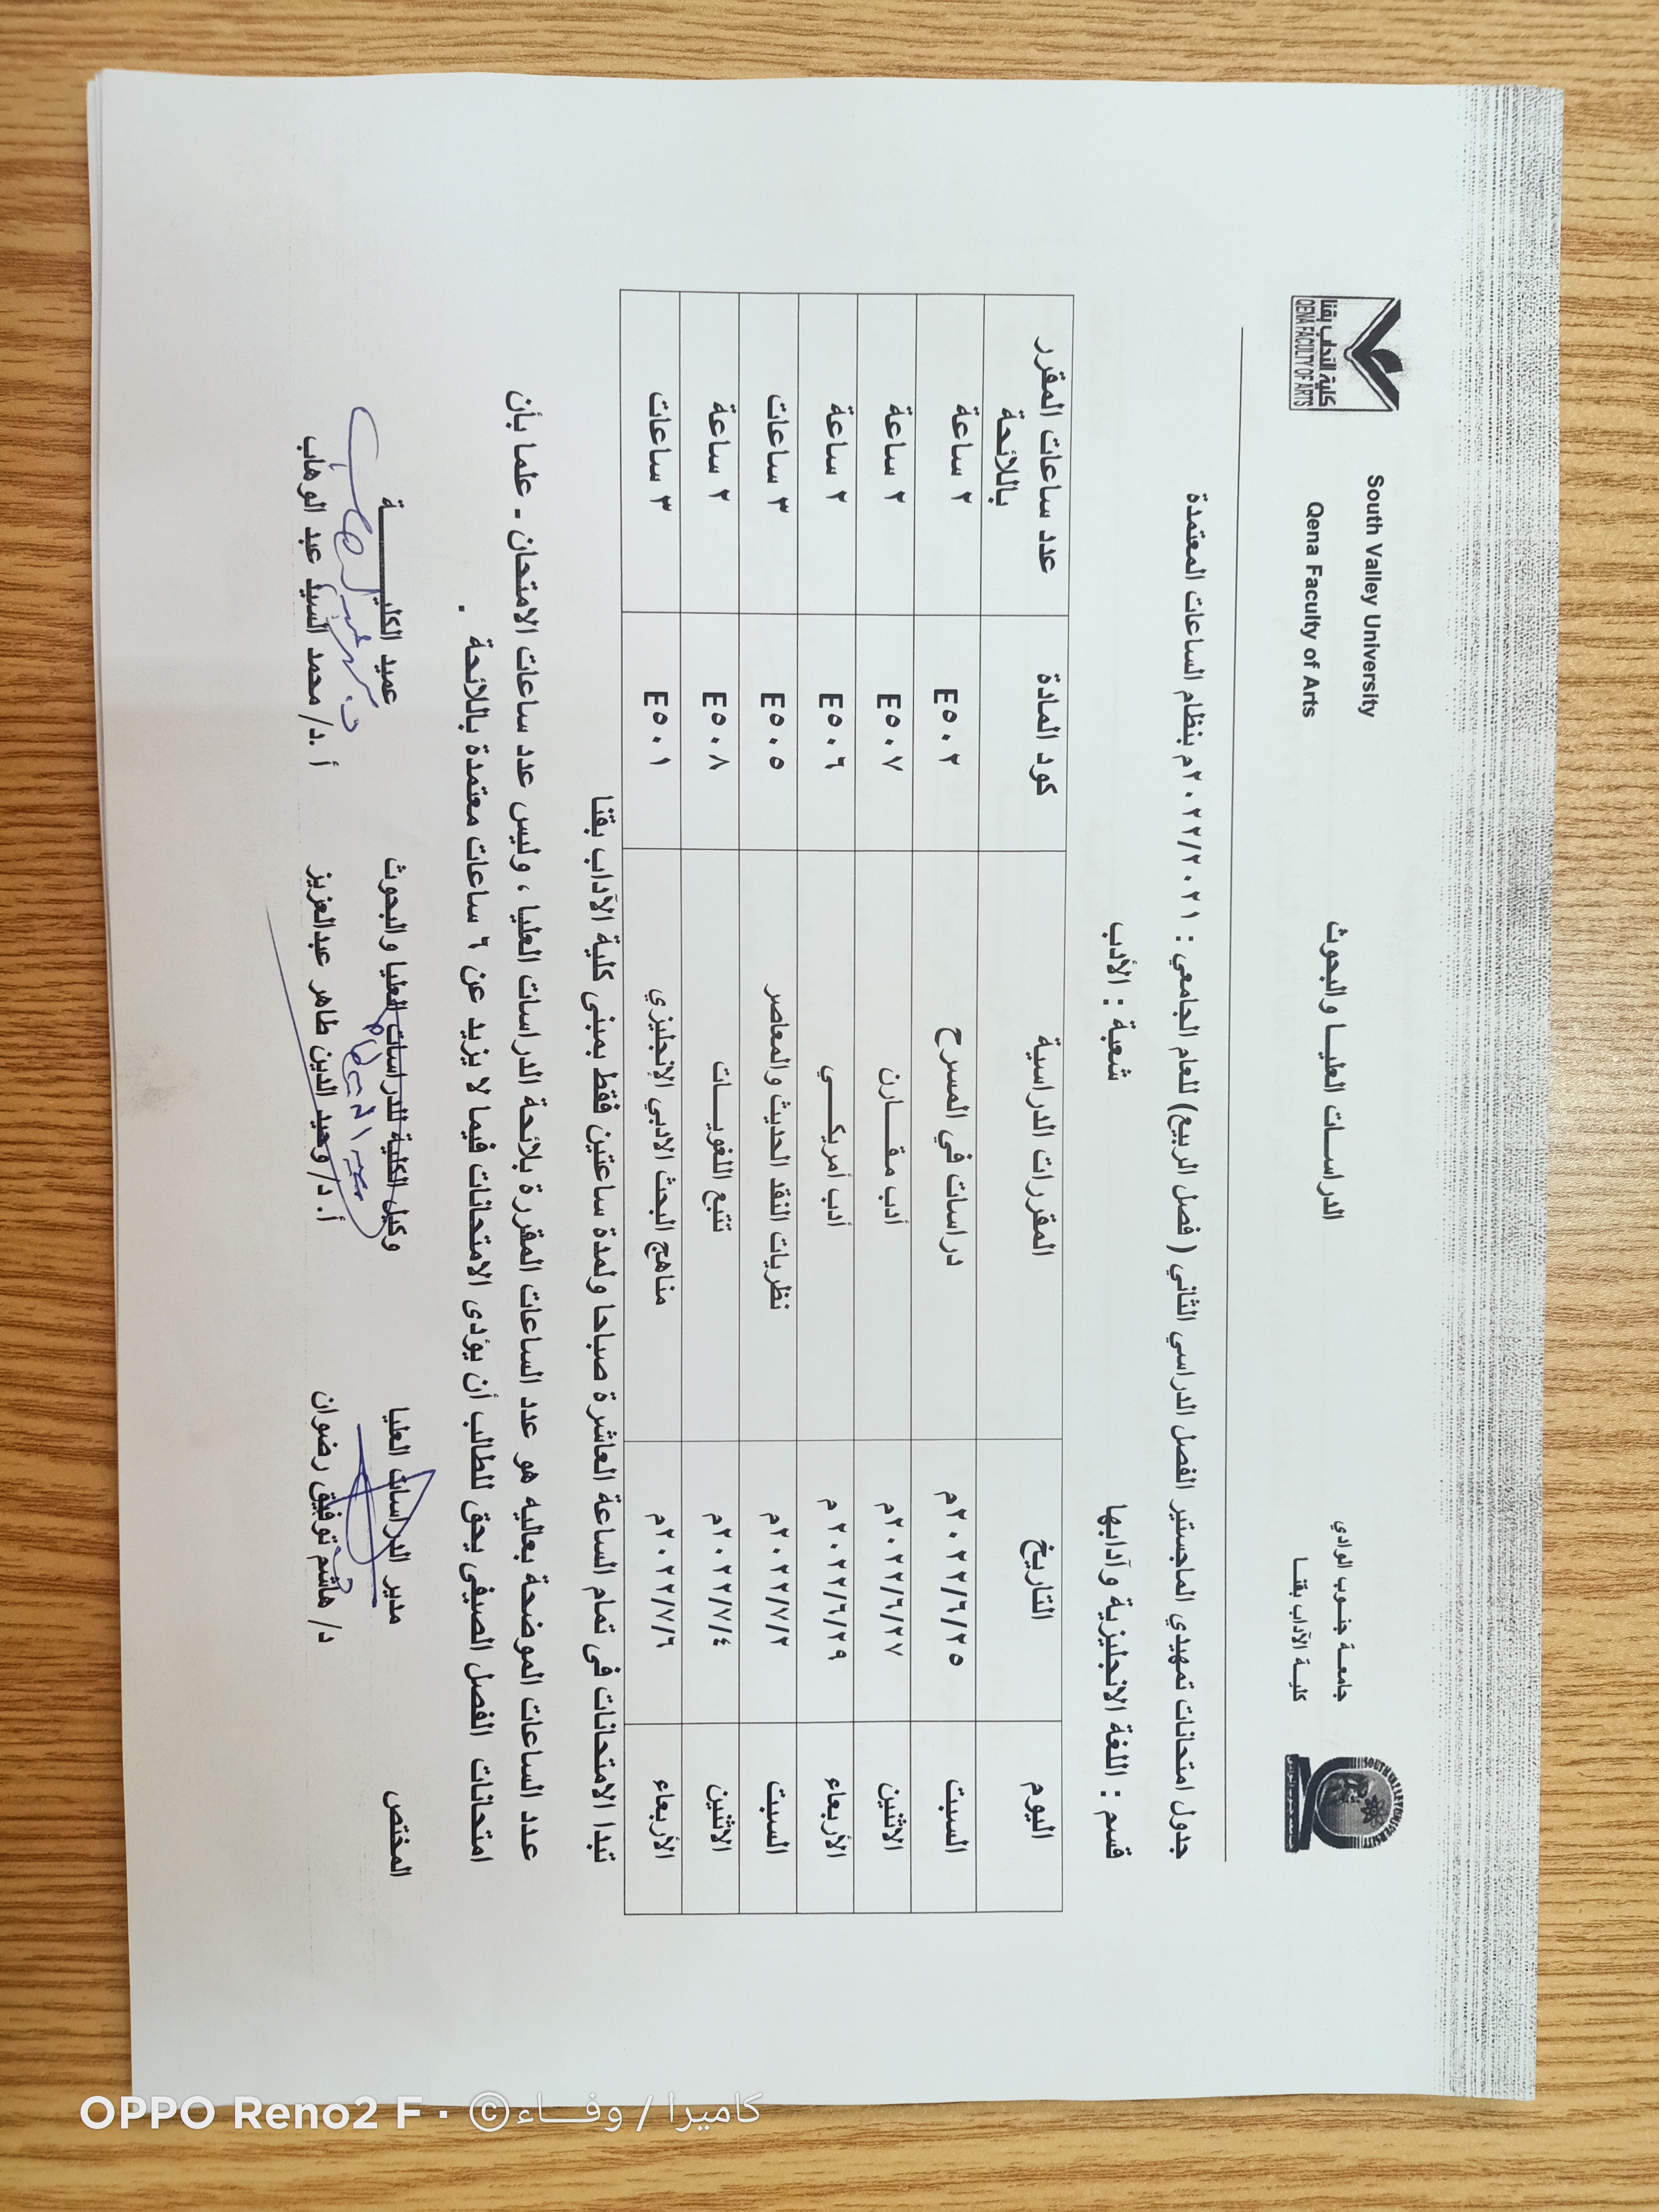 جامعة جنوب الوادي
كلية الآداب بقنا
الدراسات العليا والبحوث
South Valley University
Qena Faculty of Arts
SOUTH VALLEY UNIVERSITY
كلية الآداب بقنا
QENA FACULTY OF ARTS
جدول امتحانات تمهيدي الماجستير الفصل الدراسي الثاني ( فصل الربيع) للعام الجامعي : ٢٠٢٢/٢٠٢١م بنظام الساعات المعتمدة
قسم : اللغة الانجليزية وآدابها شعبة : الأدب
اليوم التاريخ المقررات الدراسية كود المادة عدد ساعات المقرر باللائحة
السبت ٢٠٢٢/٦/٢٥م دراسات في المسرح E٥٠٢ ٢ ساعة
الاثنين ٢٠٢٢/٦/٢٧م أدب مقارن E٥٠٧ ٢ ساعة
الأربعاء ٢٠٢٢/٦/٢٩ م أدب أمريكي E٥٠٦ ٢ ساعة
السبت ٢٠٢٢/٧/٢م نظريات النقد الحديث والمعاصر E٥٠٥ ٣ ساعات
الاثنين ٢٠٢٢/٧/٤م تتبع اللغويات E٥٠٨ ٢ ساعة
الأربعاء ٢٠٢٢/٧/٦م مناهج البحث الادبي الإنجليزي E٥٠١ ٣ ساعات
تبدا الامتحانات فى تمام الساعة العاشرة صباحا ولمدة ساعتين فقط بمبنى كلية الآداب بقنا
عدد الساعات الموضحة بعاليه هو عدد الساعات المقررة بلائحة الدراسات العليا ، وليس عدد ساعات الامتحان - علما بأن
امتحانات الفصل الصيفى يحق للطالب أن يؤدى الامتحانات فيما لا يزيد عن ٦ ساعات معتمدة باللائحة .
المختص مدير الدراسات العليا وكيل الكلية للدراسات العليا والبحوث عميد الكلية
د/ هاشم توفيق رضوان أ. د/ وحيد الدين طاهر عبدالعزيز أ.د/ محمد السيد عبد الوهاب
OPPO Reno2 F · © كاميرا / وفاء